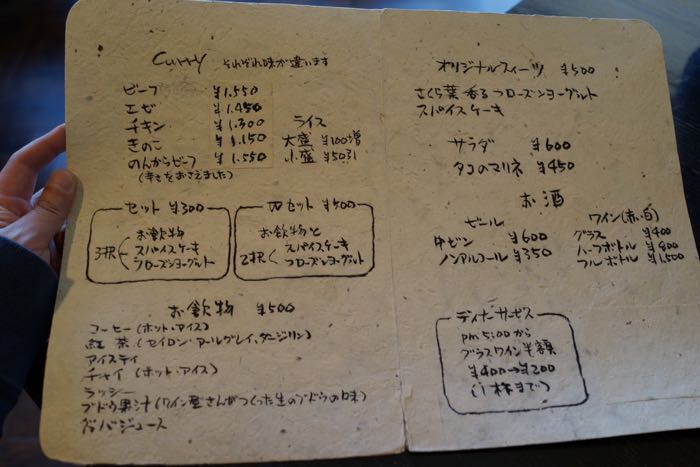 Curry それぞれ味が違います
ビーフ ¥1,550
エビ ¥1,450
チキン ¥1,300
きのこ ¥1,150
のんからビーフ ¥1,550
(辛さをおさえました)
ライス
大盛 ¥100増
小盛 ¥50引
セット ¥300
3択 お飲物
スパイスケーキ
フローズンヨーグルト
Wセット ¥500
お飲物と
2択 スパイスケーキ
フローズンヨーグルト
お飲物 ¥500
コーヒー(ホット・アイス)
紅茶(セイロン・アールグレイ、ダージリン)
アイスティ
チャイ(ホット・アイス)
ラッシー
ブドウ果汁(ワイン屋さんがつくった生のブドウの味)
グァバジュース
オリジナルスィーツ ¥500
さくら葉香るフローズンヨーグルト
スパイスケーキ
サラダ ¥600
タコのマリネ ¥450
お酒
ビール
中ビン ¥600
ノンアルコール ¥350
ワイン(赤・白)
グラス ¥400
ハーフボトル ¥800
フルボトル ¥1,500
ディナーサービス
pm5:00から
グラスワイン半額
¥400→¥200
(1杯まで)